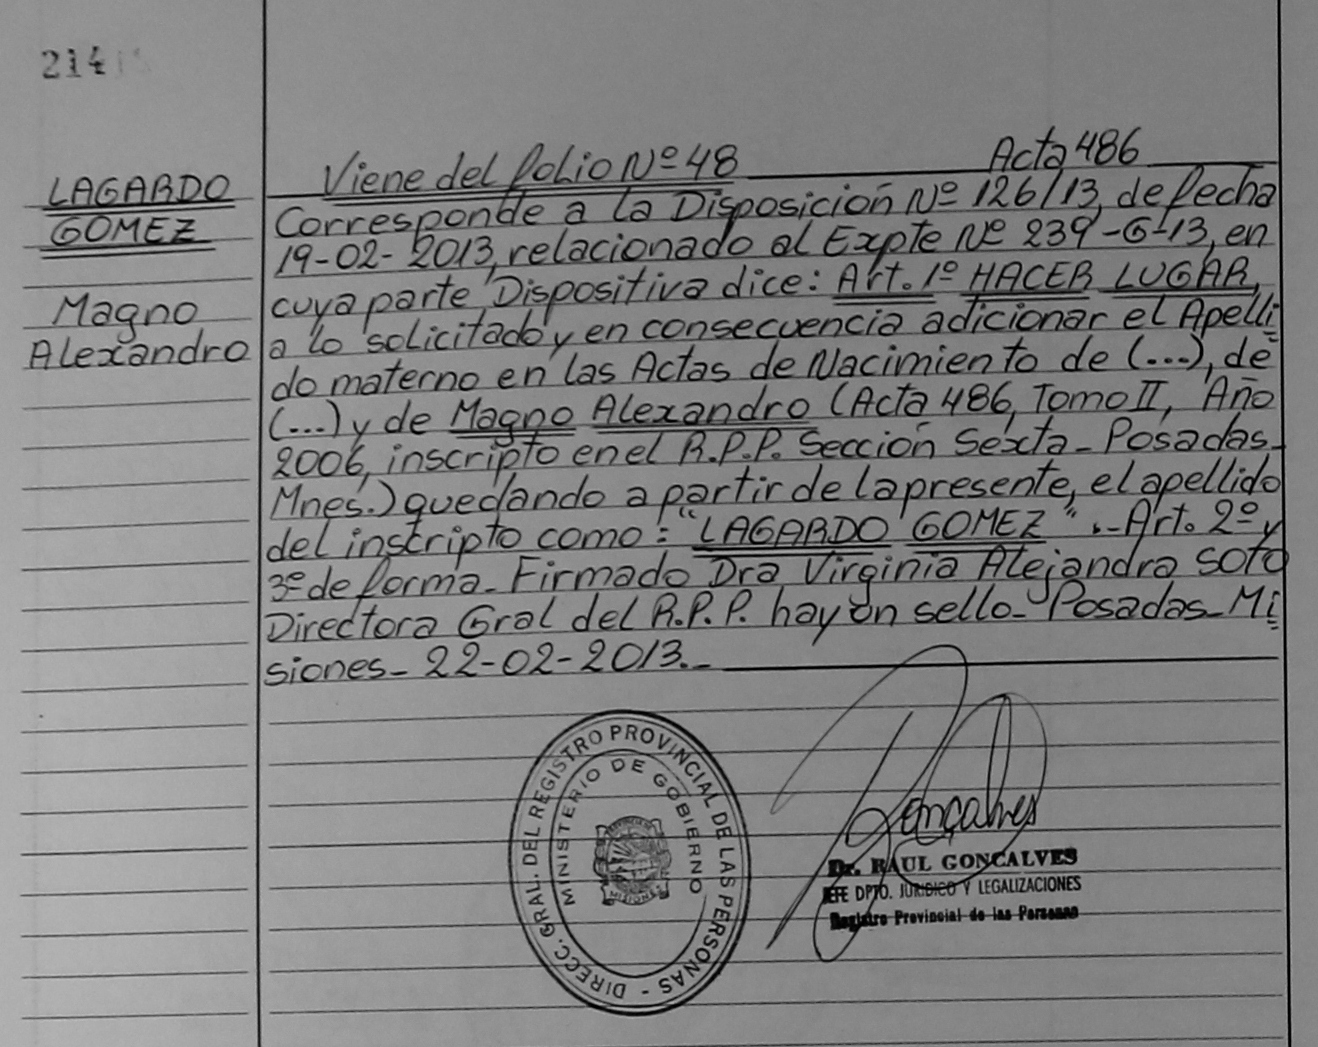 214
LAGARDO
GOMEZ
Magno
Alexandro
Viene del folio Nº 48 Acta 486
Corresponde a la Disposición Nº 126/13, de fecha
19-02-2013, relacionado al Expte Nº 239-G-13, en
cuya parte Dispositiva dice: Art. 1º HACER LUGAR,
a lo solicitado y en consecuencia adicionar el Apelli=
do materno en las Actas de Nacimiento de (...), de
(...) y de Magno Alexandro (Acta 486, Tomo II, Año
2006, inscripto en el R.P.P. Sección Sexta - Posadas -
Mnes.) quedando a partir de la presente, el apellido
del inscripto como: "LAGARDO GOMEZ". - Art. 2º y
3º de forma - Firmado Dra Virginia Alejandra Soto
Directora Gral del R.P.P. hay un sello - Posadas - Mi=
siones - 22-02-2013. -
DIRECC. GRAL. DEL REGISTRO PROVINCIAL DE LAS PERSONAS -
MINISTERIO DE GOBIERNO
MISIONES
Gonçalves
Dr. RAUL GONCALVES
JEFE DPTO. JURIDICO Y LEGALIZACIONES
Registro Provincial de las Personas